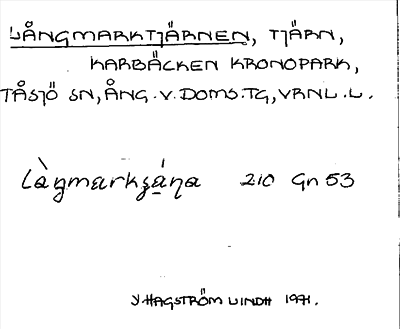 LÅNGMARKTJÄRNEN, TJÄRN,
KARBÄCKEN KRONOPARK,
TÅSJÖ SN, ÅNG. V. DOMS. TG, VRNL. L.
210 Gn 53
Y HAGSTRÖM LINDH 1971.